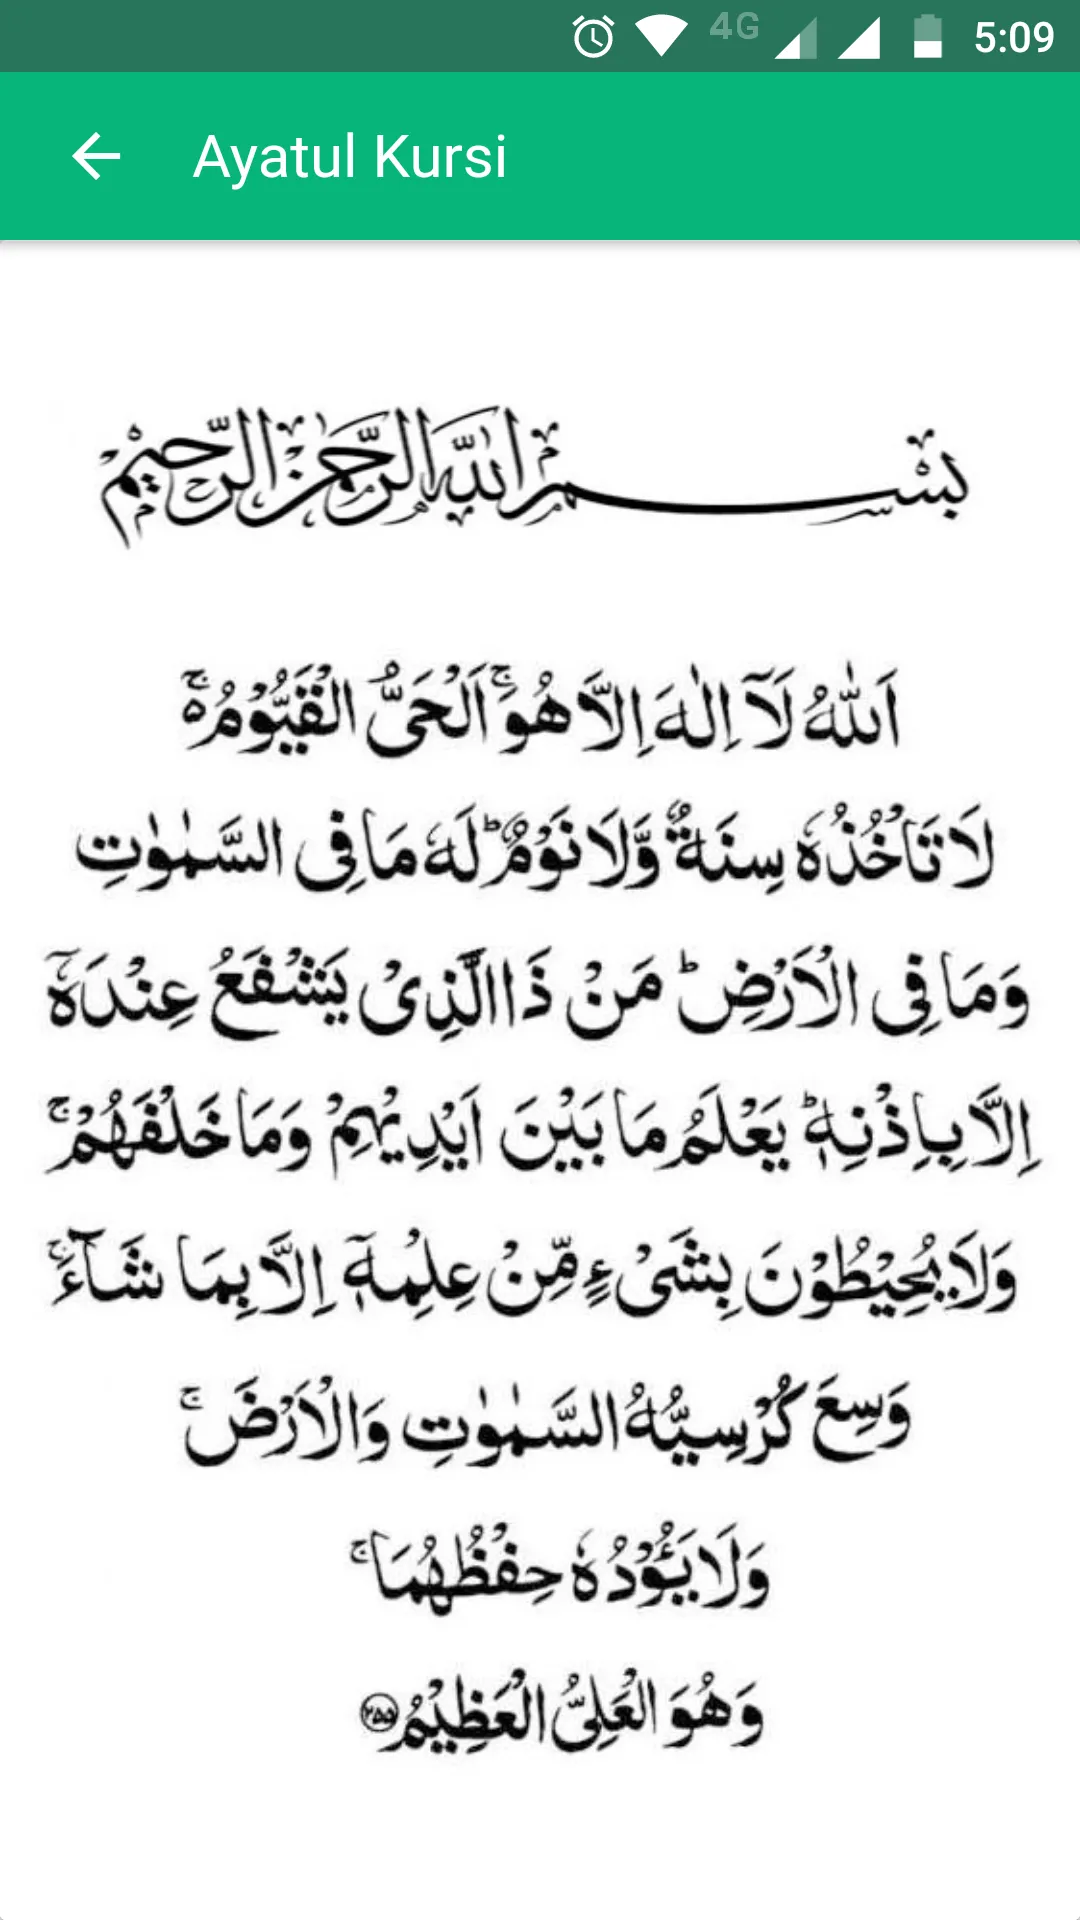 4G 5:09
Ayatul Kursi
بِسْمِ اللّٰهِ الرَّحْمٰنِ الرَّحِيْمِ
اَللّٰهُ لَآ اِلٰهَ اِلَّا هُوَۚ اَلْحَيُّ الْقَيُّوْمُ ەۚ
لَا تَاْخُذُهٗ سِنَةٌ وَّلَا نَوْمٌؕ لَهٗ مَا فِى السَّمٰوٰتِ
وَمَا فِى الْاَرْضِؕ مَنْ ذَا الَّذِىْ يَشْفَعُ عِنْدَهٗٓ
اِلَّا بِاِذْنِهٖؕ يَعْلَمُ مَا بَيْنَ اَيْدِيْهِمْ وَمَا خَلْفَهُمْۚ
وَلَا يُحِيْطُوْنَ بِشَىْءٍ مِّنْ عِلْمِهٖٓ اِلَّا بِمَا شَآءَۚ
وَسِعَ كُرْسِيُّهُ السَّمٰوٰتِ وَالْاَرْضَۚ
وَلَا يَـُٔوْدُهٗ حِفْظُهُمَاۚ
وَهُوَ الْعَلِىُّ الْعَظِيْمُ ۝۲۵۵